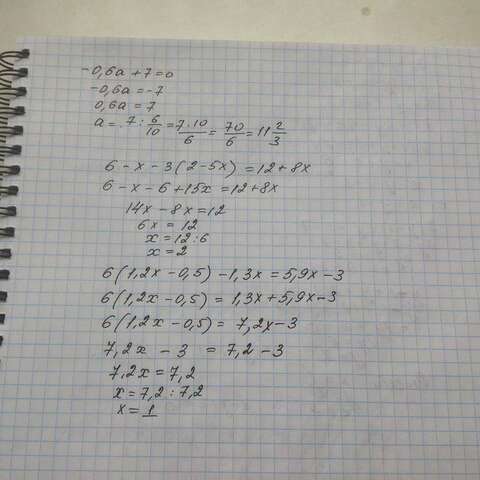 -0,6a + 7 = 0
-0,6a = -7
0,6a = 7
a = 7 : 6/10 = 7·10/6 = 70/6 = 11 2/3
6 - x - 3(2 - 5x) = 12 + 8x
6 - x - 6 + 15x = 12 + 8x
14x - 8x = 12
6x = 12
x = 12 : 6
x = 2
6(1,2x - 0,5) - 1,3x = 5,9x - 3
6(1,2x - 0,5) = 1,3x + 5,9x - 3
6(1,2x - 0,5) = 7,2x - 3
7,2x - 3 = 7,2 - 3
7,2x = 7,2
x = 7,2 : 7,2
x = 1